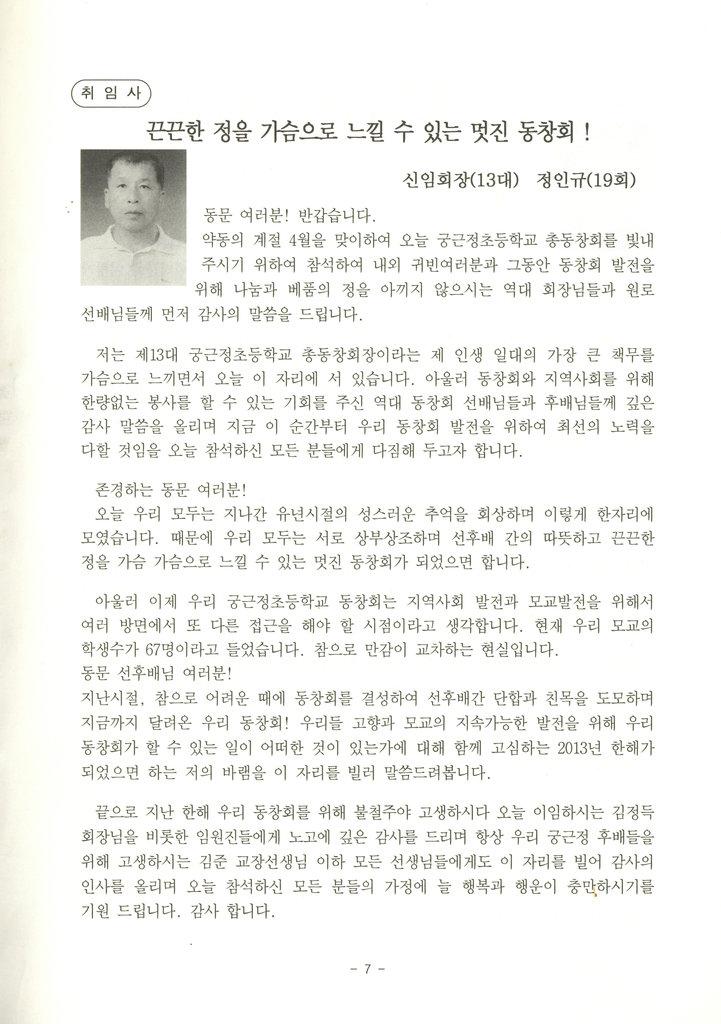 취 임 사
끈끈한 정을 가슴으로 느낄 수 있는 멋진 동창회 !
신임회장(13대) 정인규(19회)
동문 여러분! 반갑습니다.
약동의 계절 4월을 맞이하여 오늘 궁근정초등학교 총동창회를 빛내
주시기 위하여 참석하여 내외 귀빈여러분과 그동안 동창회 발전을
위해 나눔과 베품의 정을 아끼지 않으시는 역대 회장님들과 원로
선배님들께 먼저 감사의 말씀을 드립니다.
저는 제13대 궁근정초등학교 총동창회장이라는 제 인생 일대의 가장 큰 책무를
가슴으로 느끼면서 오늘 이 자리에 서 있습니다. 아울러 동창회와 지역사회를 위해
한량없는 봉사를 할 수 있는 기회를 주신 역대 동창회 선배님들과 후배님들께 깊은
감사 말씀을 올리며 지금 이 순간부터 우리 동창회 발전을 위하여 최선의 노력을
다할 것임을 오늘 참석하신 모든 분들에게 다짐해 두고자 합니다.
존경하는 동문 여러분!
오늘 우리 모두는 지나간 유년시절의 성스러운 추억을 회상하며 이렇게 한자리에
모였습니다. 때문에 우리 모두는 서로 상부상조하며 선후배 간의 따뜻하고 끈끈한
정을 가슴 가슴으로 느낄 수 있는 멋진 동창회가 되었으면 합니다.
아울러 이제 우리 궁근정초등학교 동창회는 지역사회 발전과 모교발전을 위해서
여러 방면에서 또 다른 접근을 해야 할 시점이라고 생각합니다. 현재 우리 모교의
학생수가 67명이라고 들었습니다. 참으로 만감이 교차하는 현실입니다.
동문 선후배님 여러분!
지난시절, 참으로 어려운 때에 동창회를 결성하여 선후배간 단합과 친목을 도모하며
지금까지 달려온 우리 동창회! 우리들 고향과 모교의 지속가능한 발전을 위해 우리
동창회가 할 수 있는 일이 어떠한 것이 있는가에 대해 함께 고심하는 2013년 한해가
되었으면 하는 저의 바램을 이 자리를 빌러 말씀드려봅니다.
끝으로 지난 한해 우리 동창회를 위해 불철주야 고생하시다 오늘 이임하시는 김정득
회장님을 비롯한 임원진들에게 노고에 깊은 감사를 드리며 항상 우리 궁근정 후배들을
위해 고생하시는 김준 교장선생님 이하 모든 선생님들에게도 이 자리를 빌어 감사의
인사를 올리며 오늘 참석하신 모든 분들의 가정에 늘 행복과 행운이 충만하시기를
기원 드립니다. 감사 합니다.
- 7 -